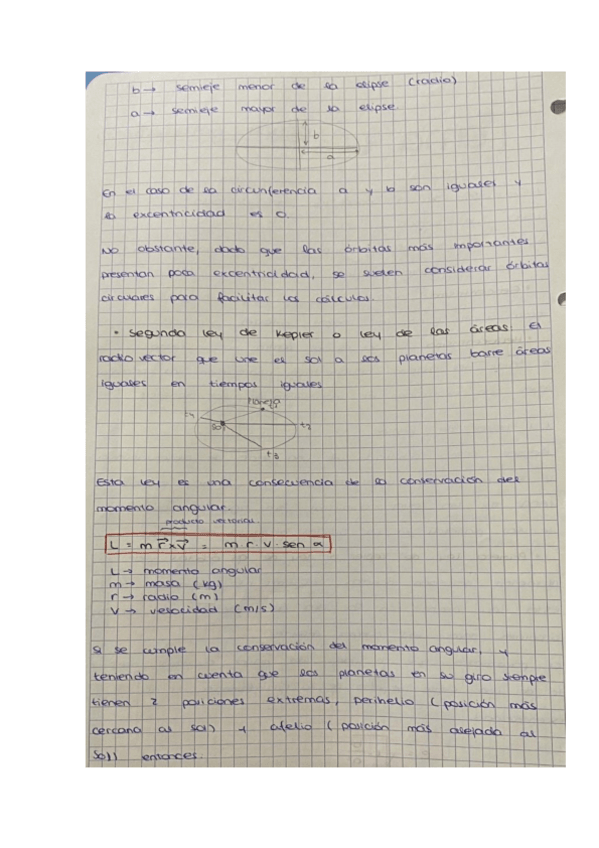 b → semieje menor de la elipse (radio)
a → semieje mayor de la elipse.
b
a
En el caso de la circunferencia a y b son iguales y
la excentricidad es 0.
No obstante, dado que las órbitas más importantes
presentan poca excentricidad, se suelen considerar órbitas
circulares para facilitar los cálculos.
• Segunda ley de Kepler o ley de las áreas: el
radio vector que une el sol a los planetas barre áreas
iguales en tiempos iguales
Sol
t2
t3
Esta ley es una consecuencia de la conservación del
momento angular.
producto vectorial
L = m r⃗ x v⃗ = m r · v · sen α
L → momento angular
m → masa (kg)
r → radio (m)
v → velocidad (m/s)
Si se cumple la conservación del momento angular, y
teniendo en cuenta que los planetas en su giro siempre
tienen 2 posiciones extremas, perihelio (posición más
cercana al sol) y afelio (posición más alejada al
sol) entonces.